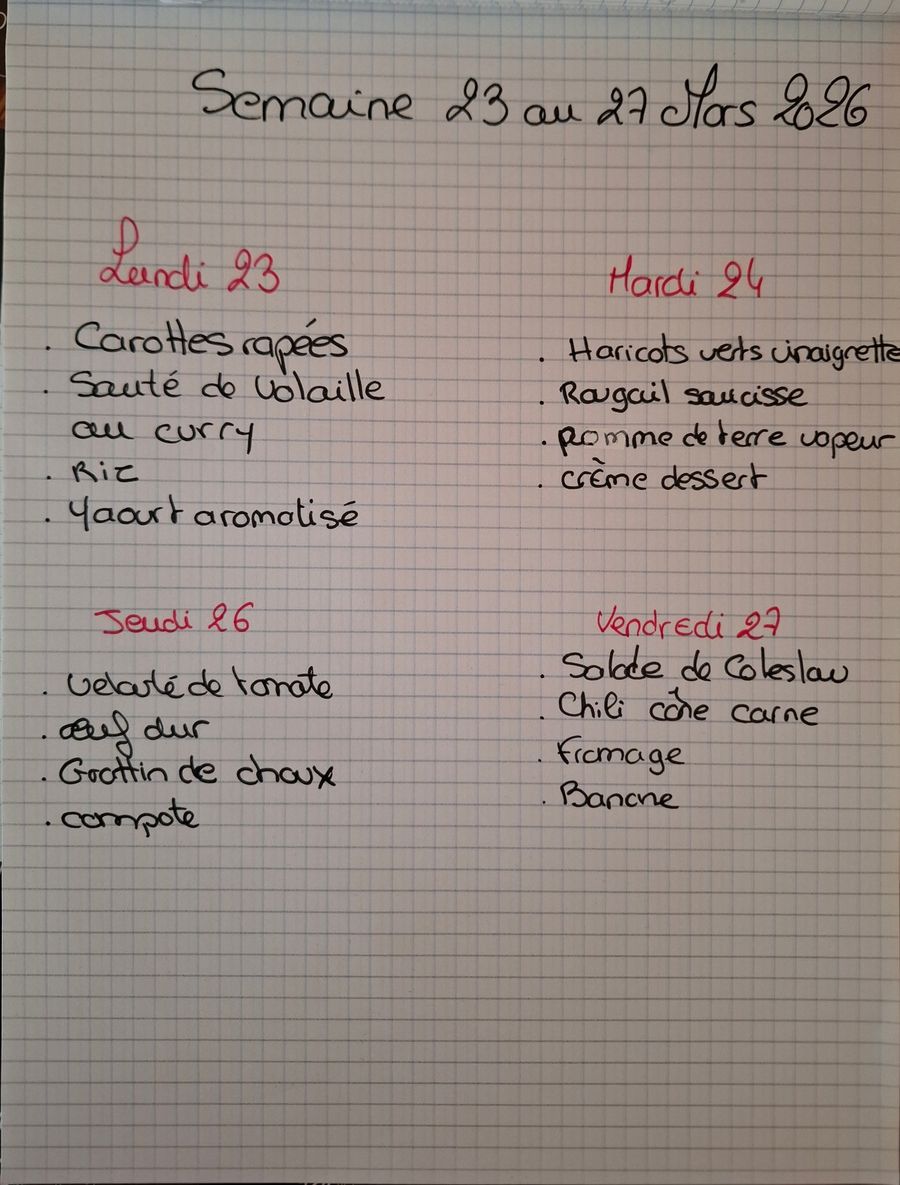 Semaine 23 au 27 Mars 2026
Lundi 23
. Carottes rapées
. Sauté de volaille
au curry
. Riz
. Yaourt aromatisé
Mardi 24
. Haricots verts vinaigrette
. Rougail saucisse
. pomme de terre vapeur
. crème dessert
Jeudi 26
. velouté de tomate
. œuf dur
. Grattin de choux
. compote
Vendredi 27
. Salade de Coleslaw
. Chili cône carne
. Fromage
. Banane